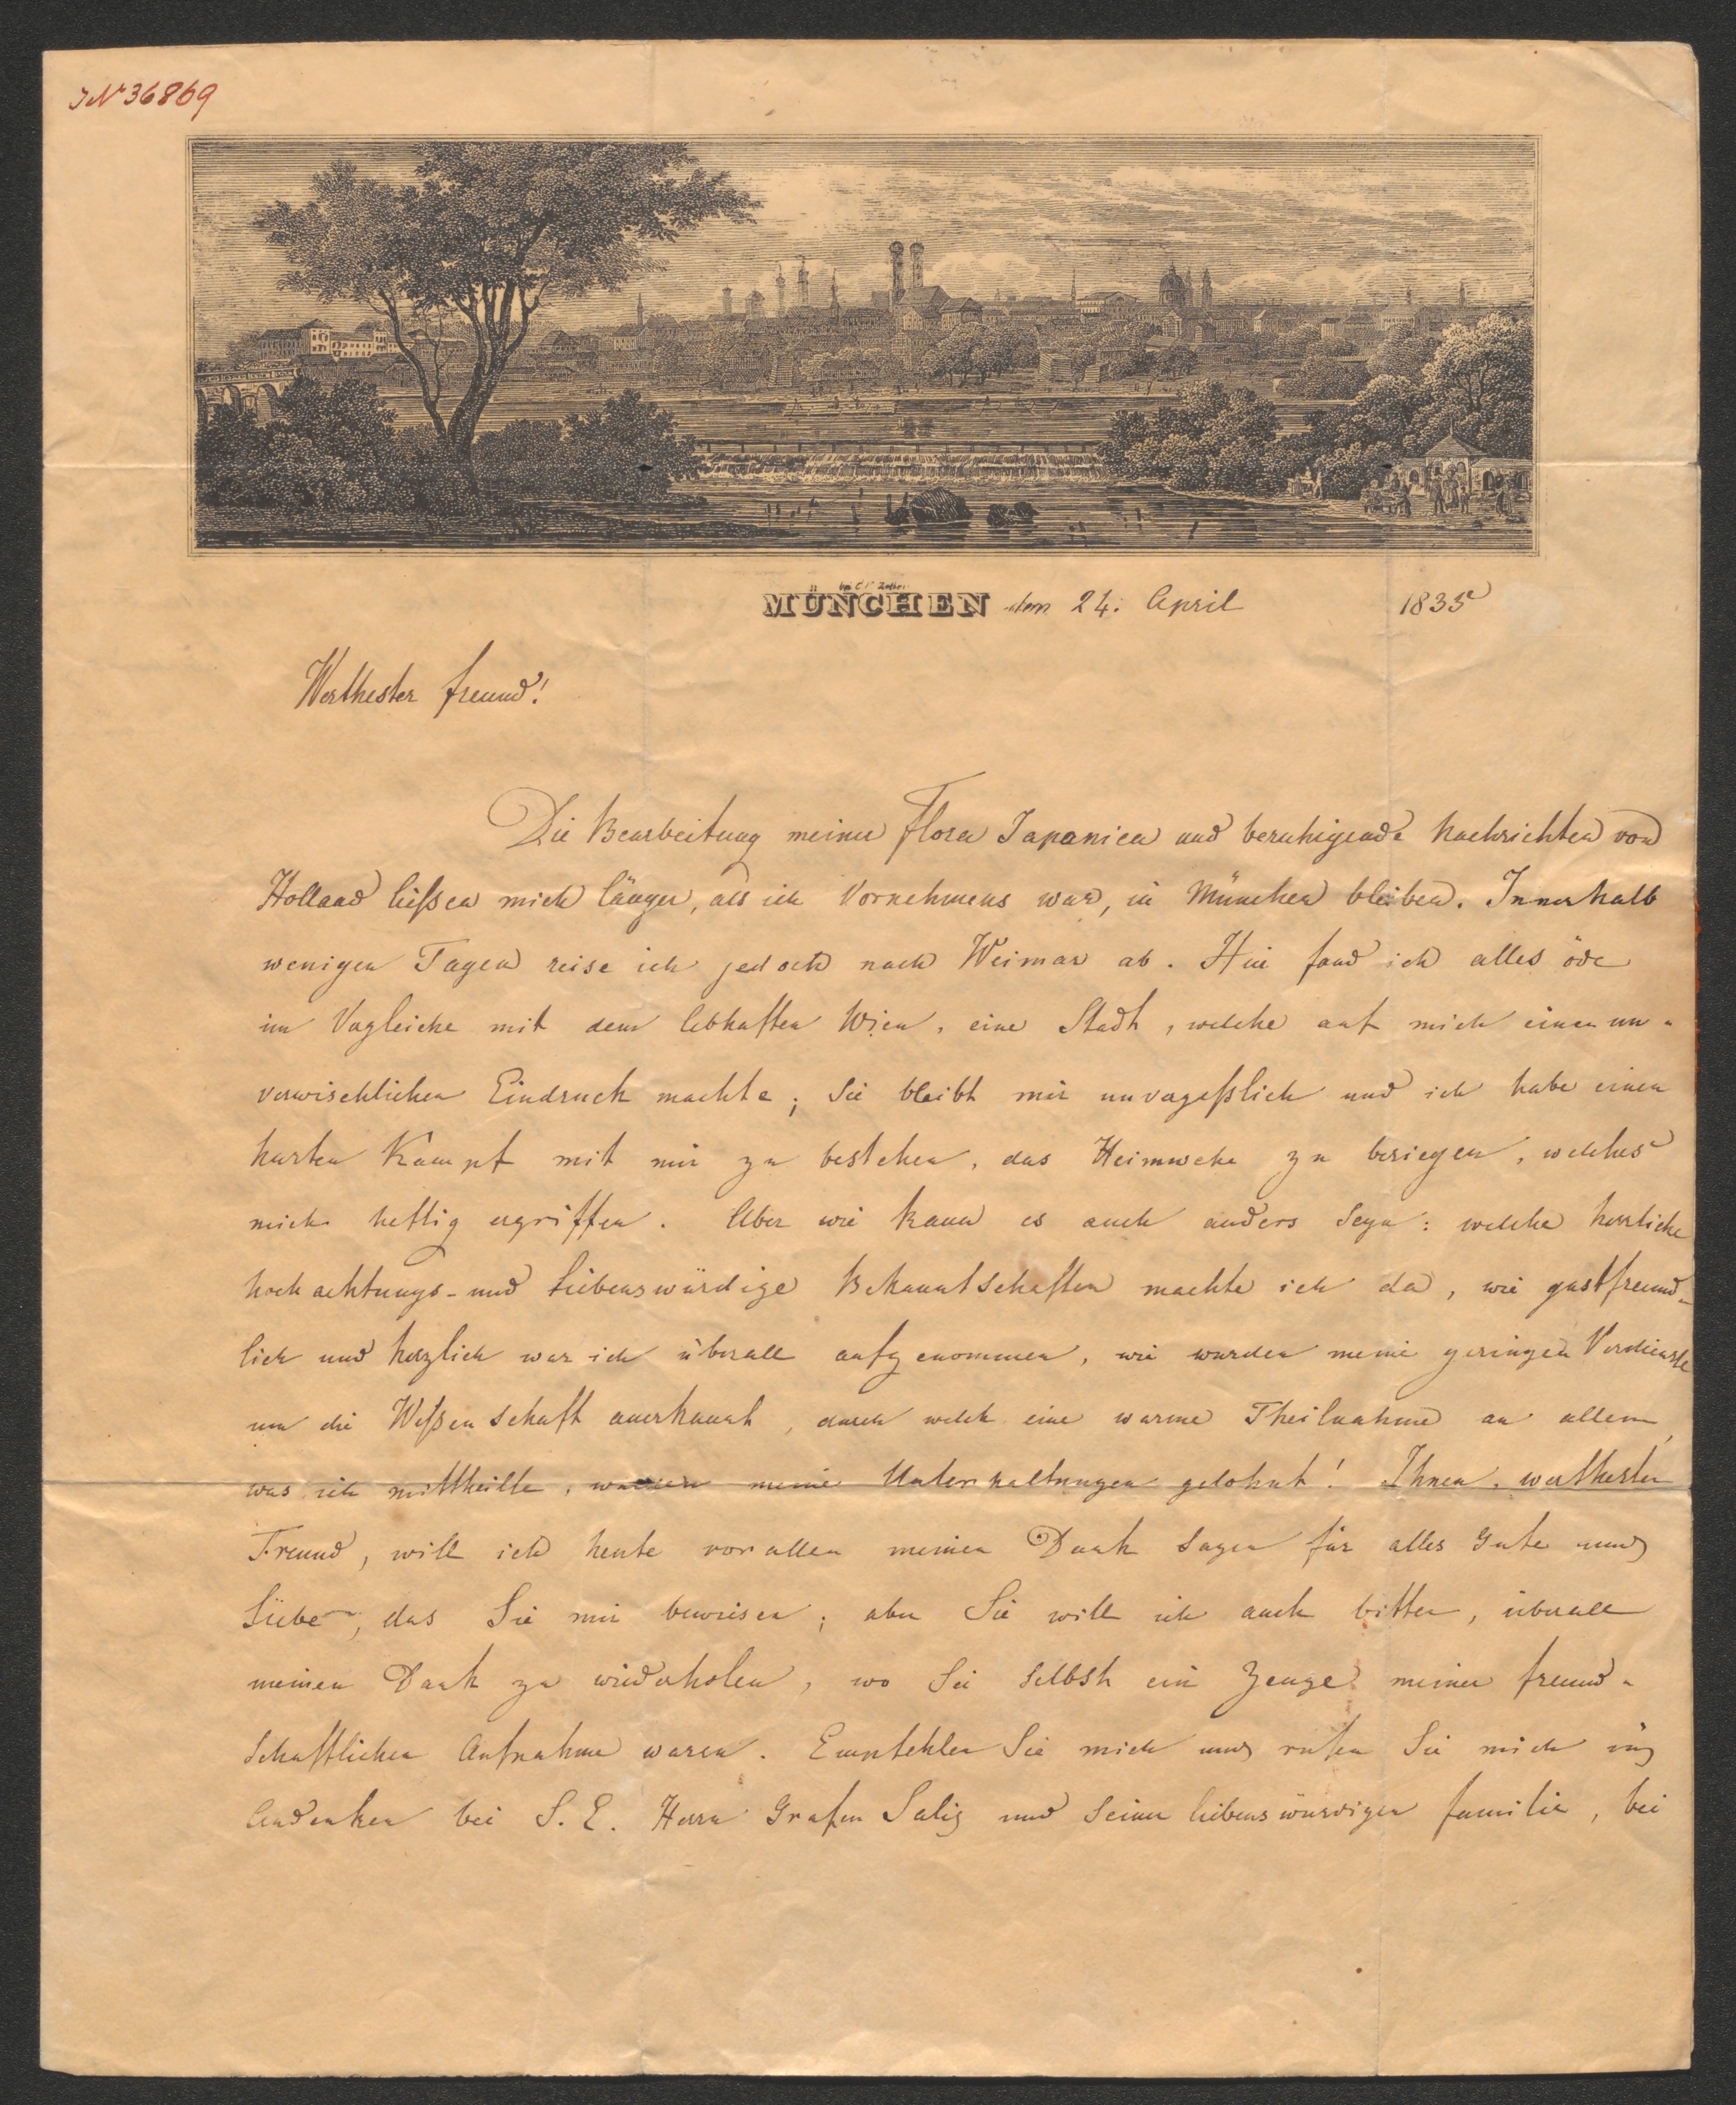 IN 36869
MÜNCHEN den 24. April 1835
Werthester Freund!
Die Bearbeitung meiner Flora Japonica und beruhigende Nachrichten von
Holland ließen mich länger, als ich Vornehmens war, in München bleiben. Innerhalb
wenigen Tagen reise ich jedoch nach Weimar ab. Hier fand ich alles öde
im Vergleiche mit dem lebhaften Wien, eine Stadt, welche auf mich einen un-
verwischlichen Eindruck machte; Sie bleibt mir unvergeßlich und ich habe einen
harten Kampf mit mir zu bestehen, das Heimwehe zu besiegen, welches
mich heftig ergriffen. Aber wie kann es auch anders seyn: welche herrliche
hochachtungs- und liebenswürdige Bekanntschaften machte ich da, wie gastfreund-
lich und herzlich war ich überall aufgenommen, wie wurden meine geringen Verdienste
um die Wißenschaft anerkannt, durch welch eine warme Theilnahme an allem,
was ich mittheilte, waren meine Unterhaltungen gelohnt! Ihnen, werthester
Freund, will ich heute vor allen meinen Dank sagen für alles Gute und
Liebe, das Sie mir bewiesen; aber Sie will ich auch bitten, überall
meinen Dank zu wiederholen, wo Sie selbst ein Zeuge meiner freund-
schaftlichen Aufnahme waren. Empfehlen Sie mich und rufen Sie mich ins
Andenken bei S. E. Herrn Grafen Salis und seiner liebenswürdigen Familie, bei